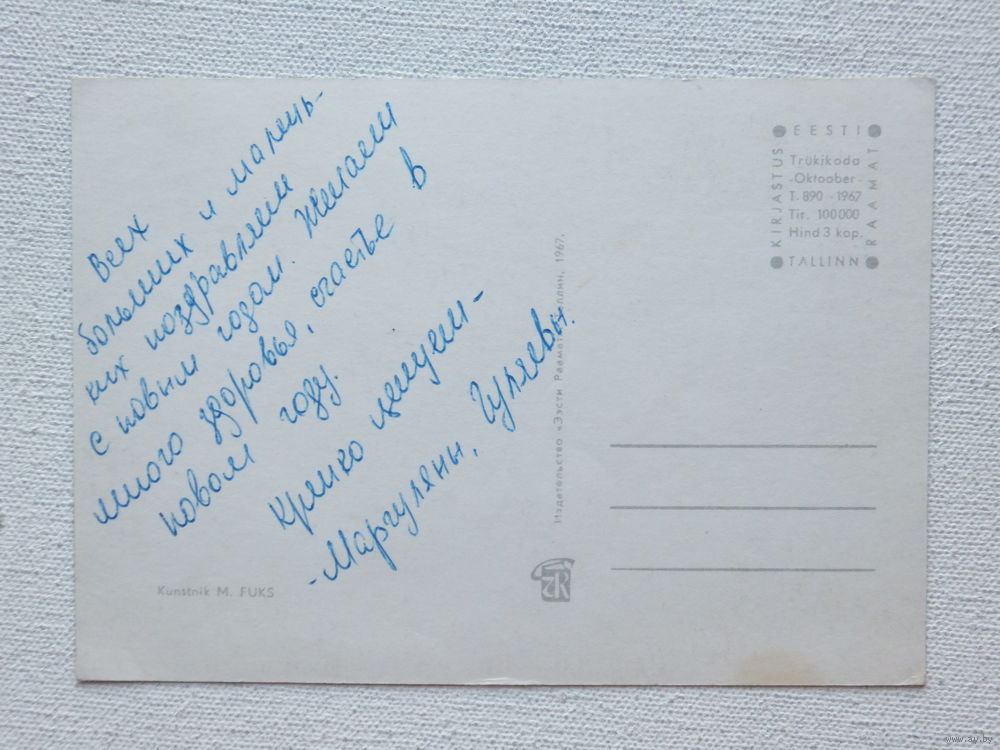 Всех
больших и малень-
ких поздравляем
с новым годом. Желаем
много здоровья, счастье в
новом году.
Крепко целуем -
- Маргуляны, Гуляевы.
Kunstnik M. FUKS
Издательство «Ээсти Раамат» Таллинн, 1967.
KIRJASTUS
EESTI
RAAMAT
TALLINN
Trükikoda
-Oktoober-
T. 890 - 1967
Tir. 100000
Hind 3 kop.
www.ay.by